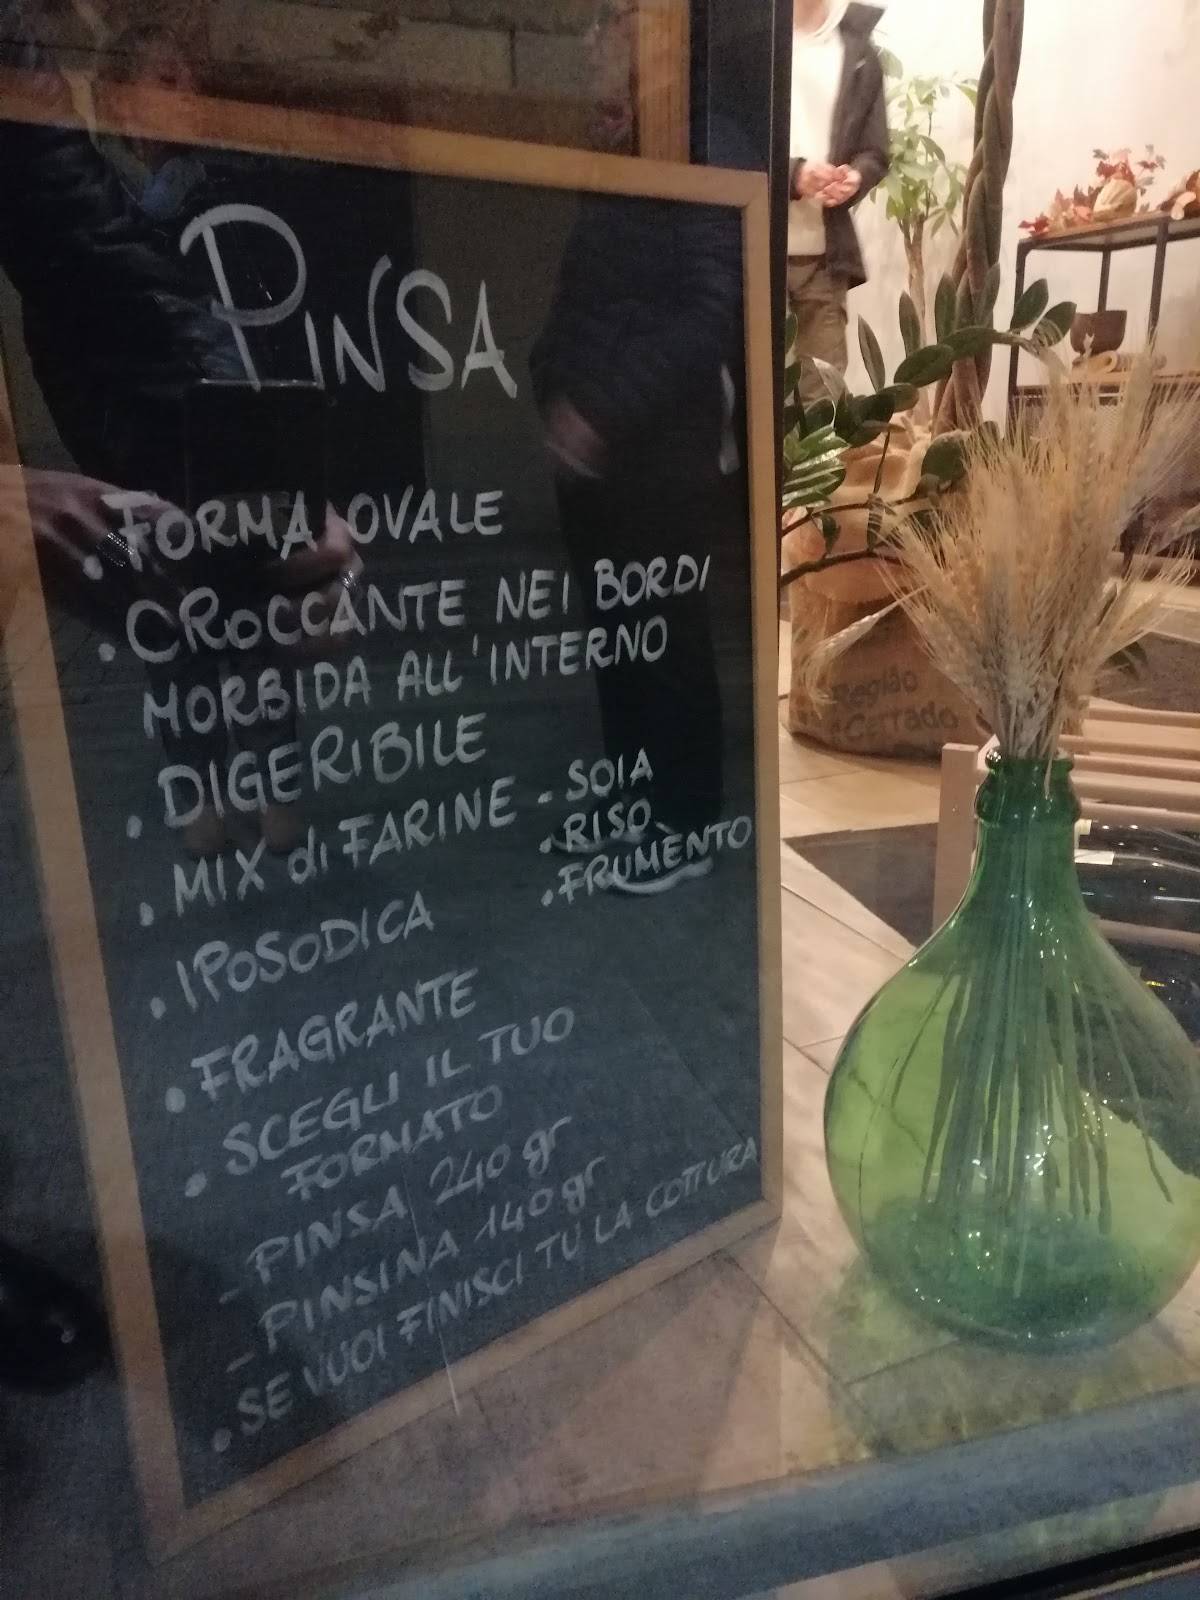 PINSA
• FORMA OVALE
• CROCCANTE NEI BORDI
MORBIDA ALL'INTERNO
• DIGERIBILE
• MIX di FARINE - SOIA
• RISO
• FRUMÈNTO
• IPOSODICA
• FRAGRANTE
• SCEGLI IL TUO
FORMATO
- PINSA 240 gr
- PINSINA 140 gr
• SE VUOI FINISCI TU LA COTTURA
Região
Cerrado